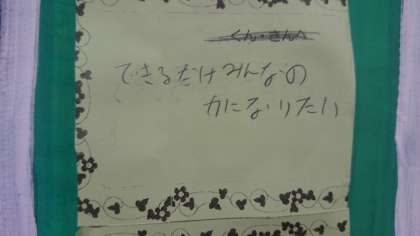 くん・さんへ
できるだけみんなの
力になりたい